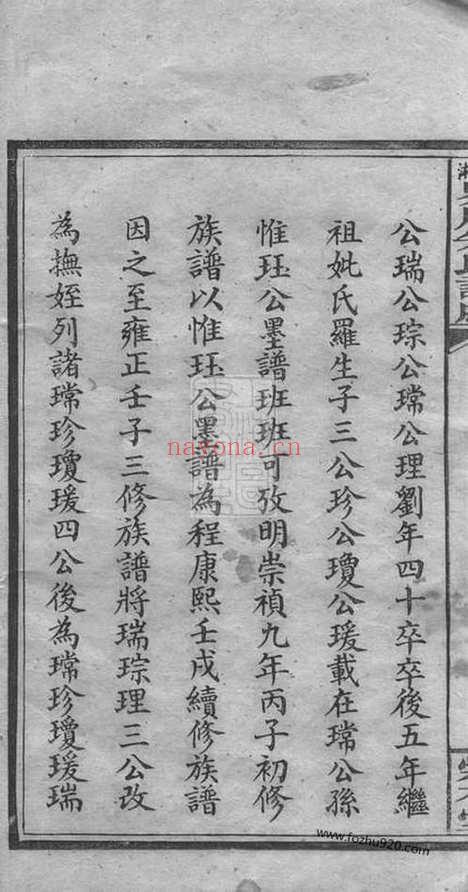 公瑞公琮公瑺公理劉年四十卒卒後五年繼
祖妣氏羅生子三公珍公瓊公瑗載在瑺公孫
惟珏公墨譜班班可攷明崇禎九年丙子初修
族譜以惟珏公墨譜為程康熙壬戌續修族譜
因之至雍正壬子三修族譜將瑞琮理三公改
為撫姪列諸瑺珍瓊瑗四公後為瑺珍瓊瑗瑞
nayona.cn
www.fozhu920.com